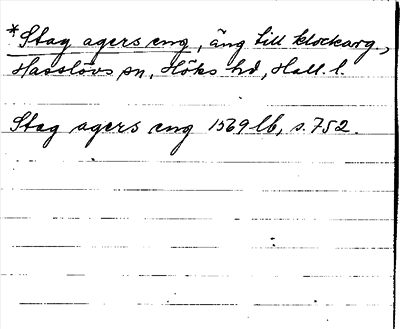 *Stag agers eng, äng till klockarg.,
Hasslövs sn, Höks hd, Hall. l.
Stag agers eng 1569 lb, s. 752.